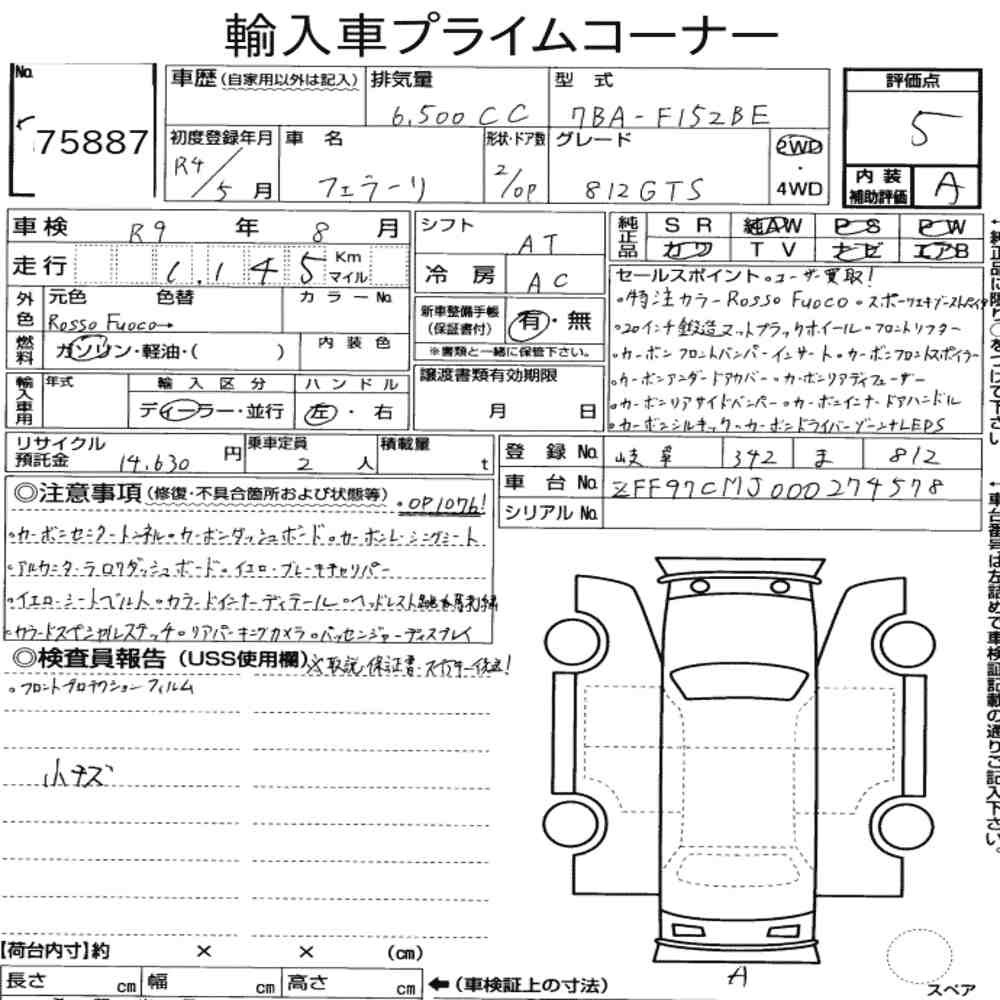 輸入車プライムコーナー
No. 75887
車歴(自家用以外は記入) 排気量 6,500CC 型式 7BA-F152BE
評価点 5
初度登録年月 R4/5月 車名 フェラーリ 形状・ドア数 2/OP グレード 812GTS 2WD・4WD
内装補助評価 A
車検 R9年 8月 シフト AT 純正品 SR 純AW PS PW
カワ TV ナビ エアB
走行 1,145 Km マイル 冷房 AC
外色 元色 色替 カラーNo.
Rosso Fuoco→
燃料 ガソリン・軽油・( ) 内装色
新車整備手帳(保証書付) 有・無
※書類と一緒に保管下さい。
輸入車用 年式 輸入区分 ハンドル
ディーラー・並行 左・右
譲渡書類有効期限
月 日
セールスポイント。ユーザー買取!
・特注カラーRosso Fuoco。
・20インチ鍛造マットブラックホイール・フロントリフター
・カーボンフロントバンパーインサート・カーボンフロントスポイラー
・カーボンアンダードアカバー・カーボンリアディフューザー
・カーボンリアサイドバンパー・カーボンインナードアハンドル
・カーボンシルキック・カーボンドライバーゾーン+LEDS
リサイクル預託金 14,630円 乗車定員 2人 積載量 t
登録No. 岐阜 342 ま 812
車台No. ZFF97CMJ000274578
シリアルNo.
◎注意事項(修復・不具合箇所および状態等)・OP1076!
・カーボンセンタートンネル・カーボンダッシュボード・カーボンレーシングシート
・アルカンターラロワダッシュボード・イエローブレーキキャリパー
・イエローシートベルト・カラードインナーディテール・ヘッドレスト跳ね馬刺繍
・カラードスペシャルステッチ・リアパーキングカメラ・パッセンジャーディスプレイ
◎検査員報告(USS使用欄)※取説、保証書・スペアキー後送!
・フロントプロテクションフィルム
小キズ
A
【荷台内寸】約 × × (cm)
長さ cm 幅 cm 高さ cm ←(車検証上の寸法)
スペア
←純正品に限り○をつけて下さい
←車台番号は左詰めで車検証記載の通りご記入下さい。